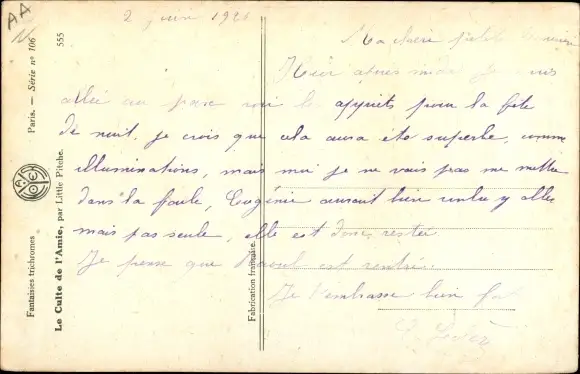 AA
2 juin 1926
Ma chère petite
Hier après midi je suis
allée au parc voir les apprêts pour la fête
de nuit. je crois que cela aura été superbe, comme
illuminations, mais moi je ne vais pas me mettre
dans la foule, Eugénie aurait bien voulu y aller
mais pas seule, elle est donc restée
Je pense que Raoul est rentré.
Je t'embrasse bien fort
Fantaisies trichromes
Paris. — Série n° 106
Le Culte de l'Amie, par Little Pitche.
555
Fabrication française.